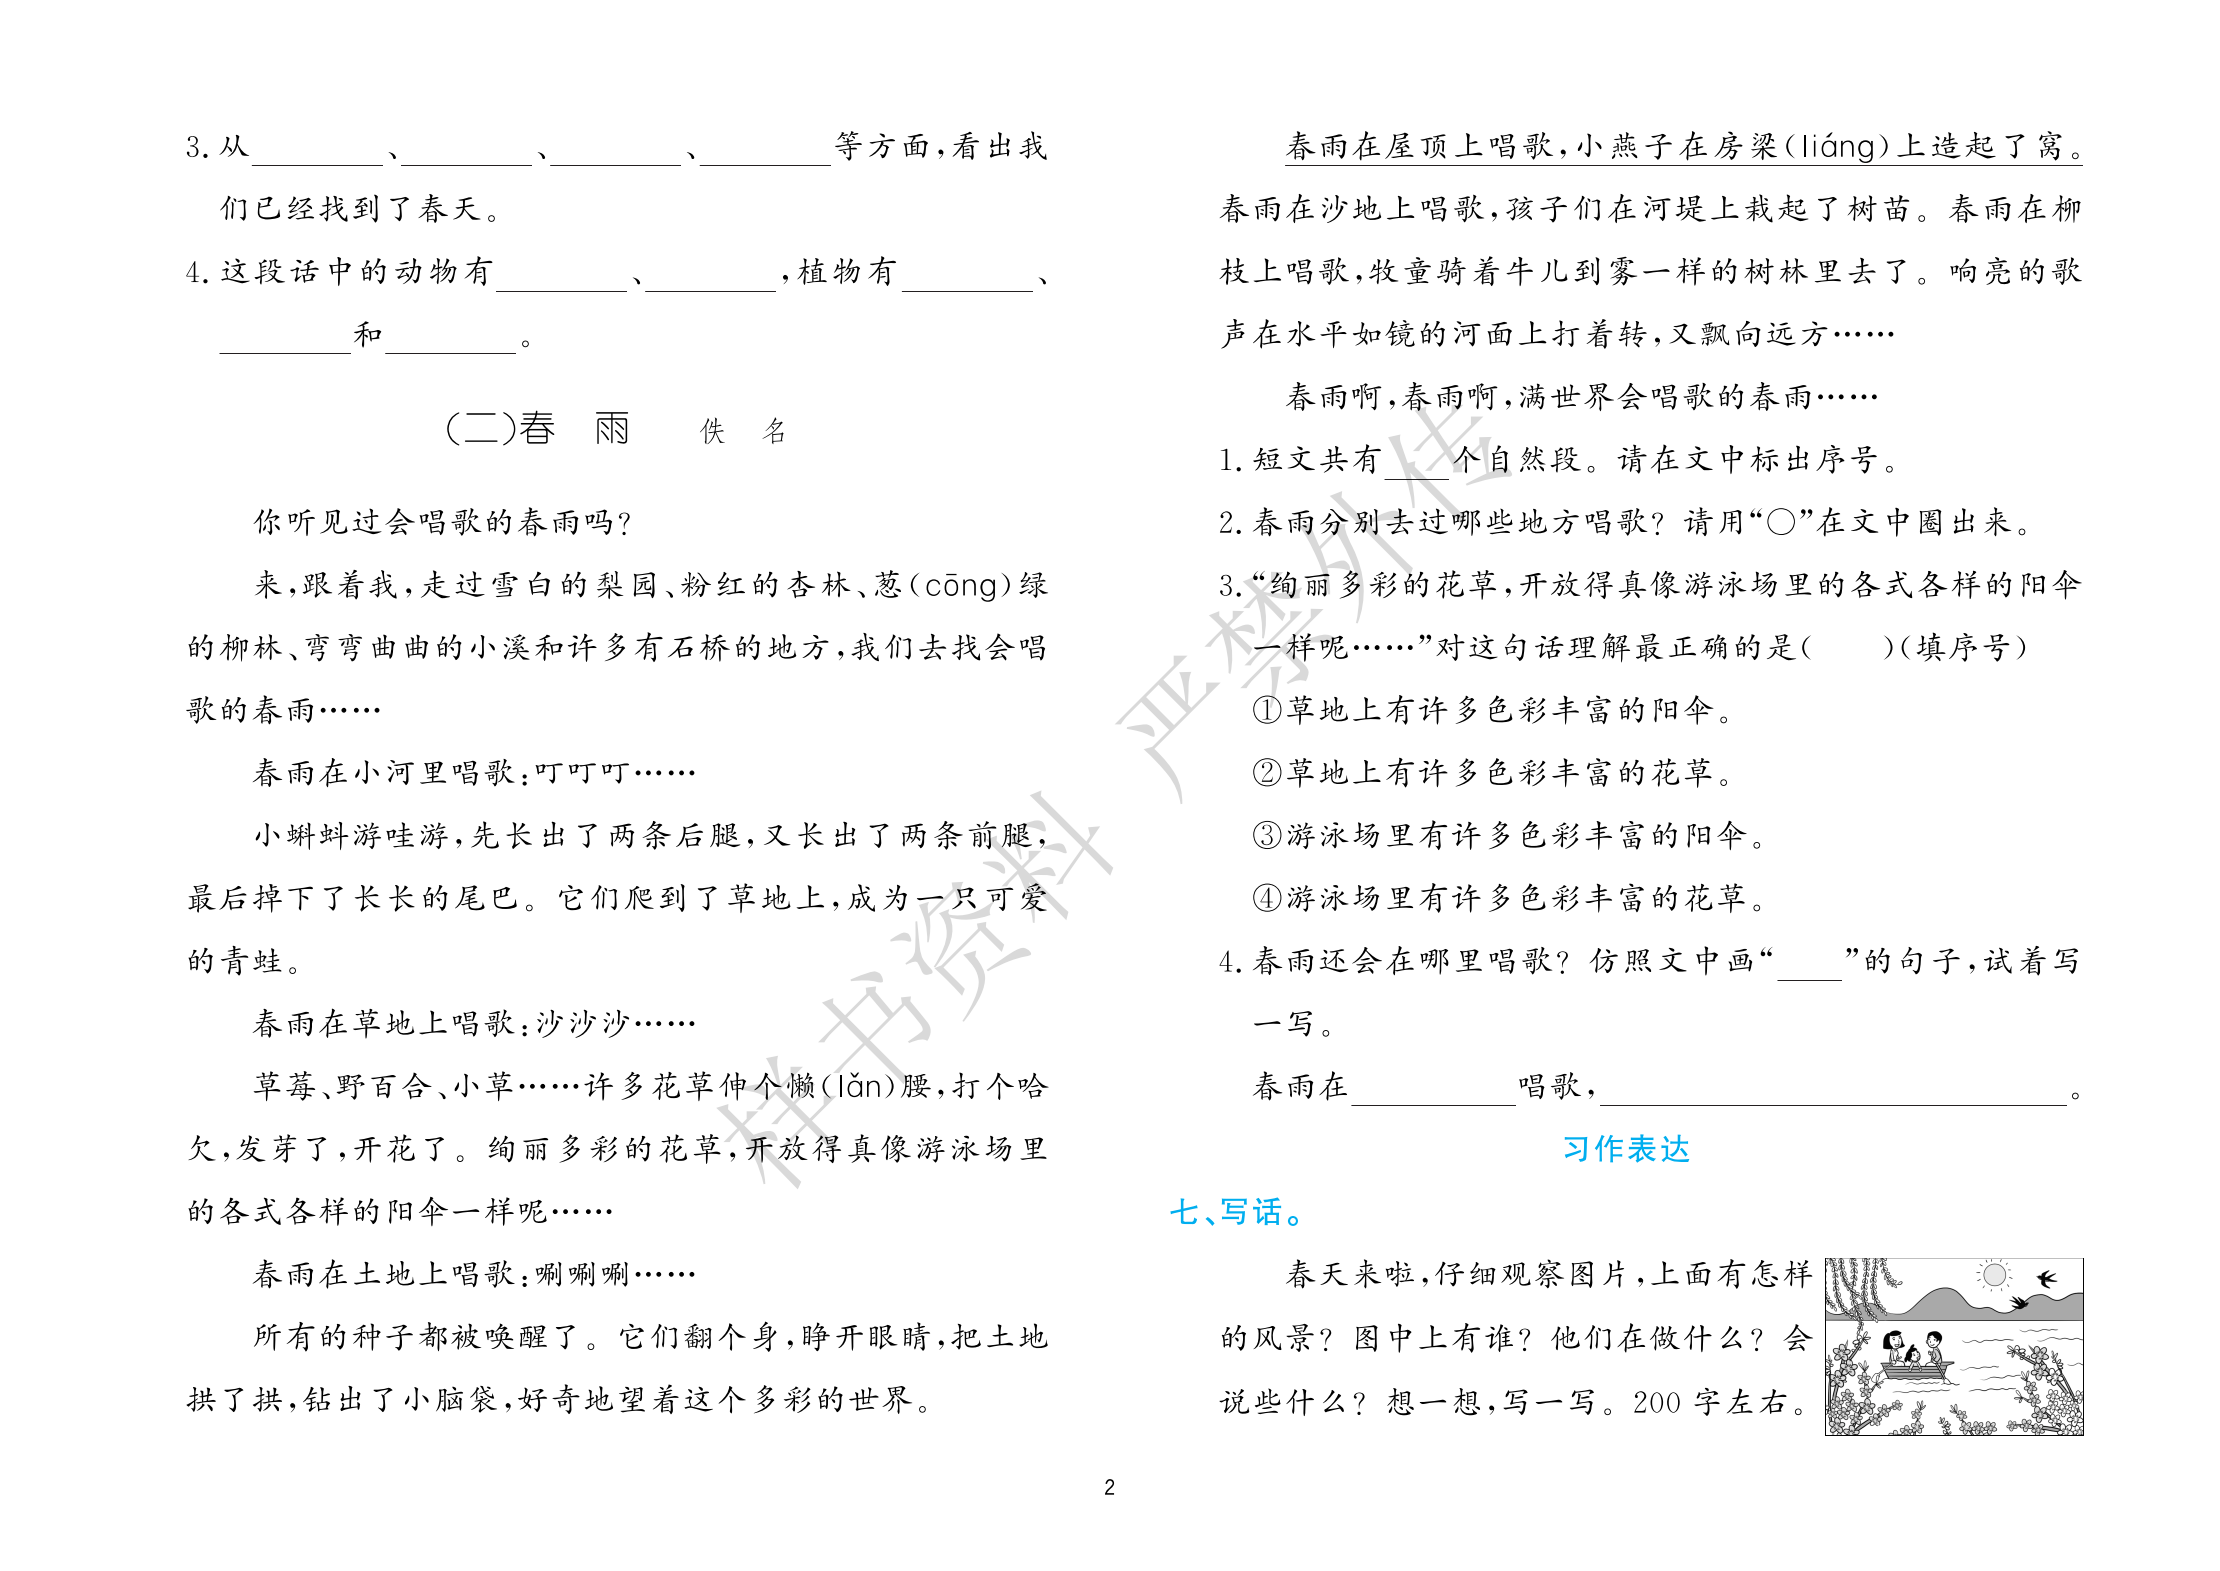 3.从____、____、____、____等方面,看出我
们已经找到了春天。
4.这段话中的动物有____、____,植物有____、
____和____。
(二)春 雨 佚 名
你听见过会唱歌的春雨吗?
来,跟着我,走过雪白的梨园、粉红的杏林、葱(cōng)绿
的柳林、弯弯曲曲的小溪和许多有石桥的地方,我们去找会唱
歌的春雨……
春雨在小河里唱歌:叮叮叮……
小蝌蚪游哇游,先长出了两条后腿,又长出了两条前腿,
最后掉下了长长的尾巴。它们爬到了草地上,成为一只可爱
的青蛙。
春雨在草地上唱歌:沙沙沙……
草莓、野百合、小草……许多花草伸个懒(lǎn)腰,打个哈
欠,发芽了,开花了。绚丽多彩的花草,开放得真像游泳场里
的各式各样的阳伞一样呢……
春雨在土地上唱歌:唰唰唰……
所有的种子都被唤醒了。它们翻个身,睁开眼睛,把土地
拱了拱,钻出了小脑袋,好奇地望着这个多彩的世界。
春雨在屋顶上唱歌,小燕子在房梁(liáng)上造起了窝。
春雨在沙地上唱歌,孩子们在河堤上栽起了树苗。春雨在柳
枝上唱歌,牧童骑着牛儿到雾一样的树林里去了。响亮的歌
声在水平如镜的河面上打着转,又飘向远方……
春雨啊,春雨啊,满世界会唱歌的春雨……
1.短文共有____个自然段。请在文中标出序号。
2.春雨分别去过哪些地方唱歌?请用“○”在文中圈出来。
3.“绚丽多彩的花草,开放得真像游泳场里的各式各样的阳伞
一样呢……”对这句话理解最正确的是(  )(填序号)
①草地上有许多色彩丰富的阳伞。
②草地上有许多色彩丰富的花草。
③游泳场里有许多色彩丰富的阳伞。
④游泳场里有许多色彩丰富的花草。
4.春雨还会在哪里唱歌?仿照文中画“____”的句子,试着写
一写。
春雨在____唱歌,____。
习作表达
七、写话。
春天来啦,仔细观察图片,上面有怎样
的风景?图中上有谁?他们在做什么?会
说些什么?想一想,写一写。200字左右。
2
样书资料 严禁外传